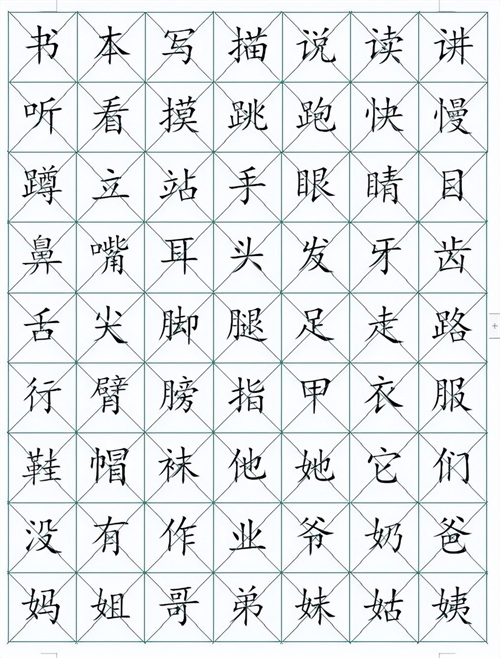 书本写描说读讲
听看摸跳跑快慢
蹲立站手眼睛目
鼻嘴耳头发牙齿
舌尖脚腿足走路
行臂膀指甲衣服
鞋帽袜他她它们
没有作业爷奶爸
妈姐哥弟妹姑姨